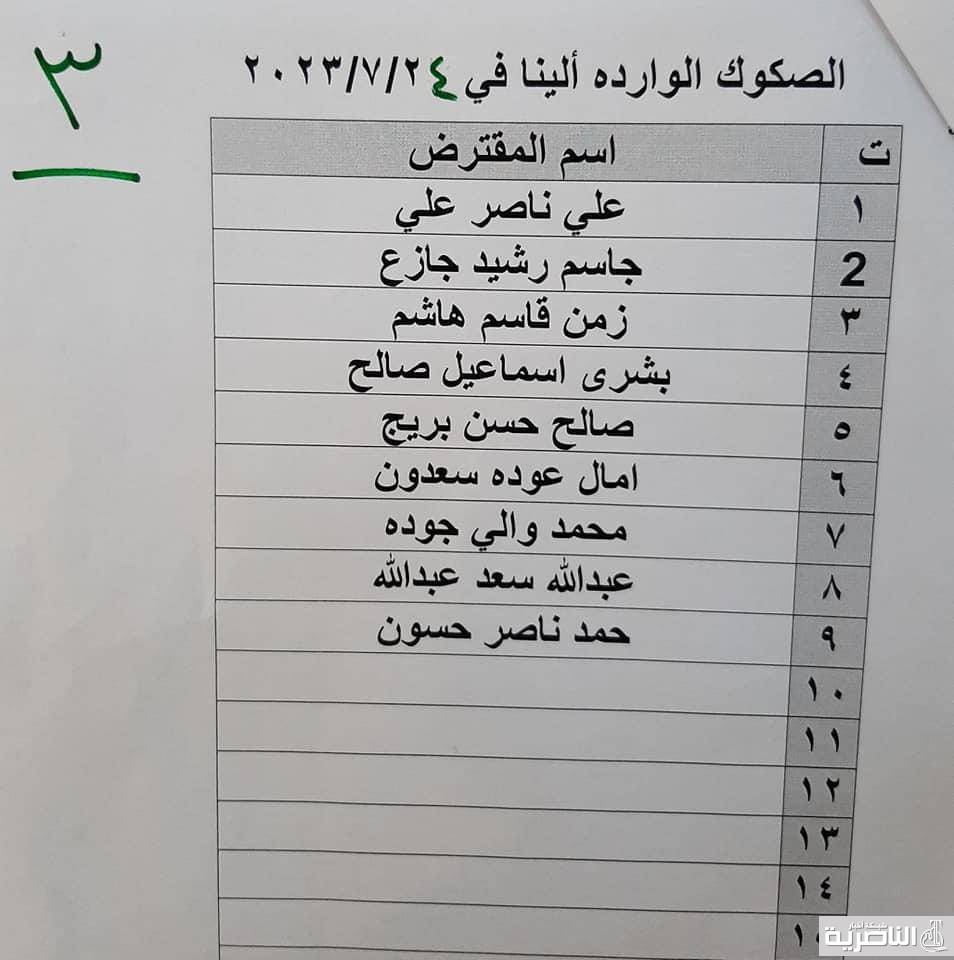 ٣
الصكوك الوارده ألينا في ٢٠٢٣/٧/٢٤
ت اسم المقترض
١ علي ناصر علي
2 جاسم رشيد جازع
٣ زمن قاسم هاشم
٤ بشرى اسماعيل صالح
٥ صالح حسن بريج
٦ امال عوده سعدون
٧ محمد والي جوده
٨ عبدالله سعد عبدالله
٩ حمد ناصر حسون
١٠
١١
١٢
١٣
١٤
شبكة أخبار
الناصرية